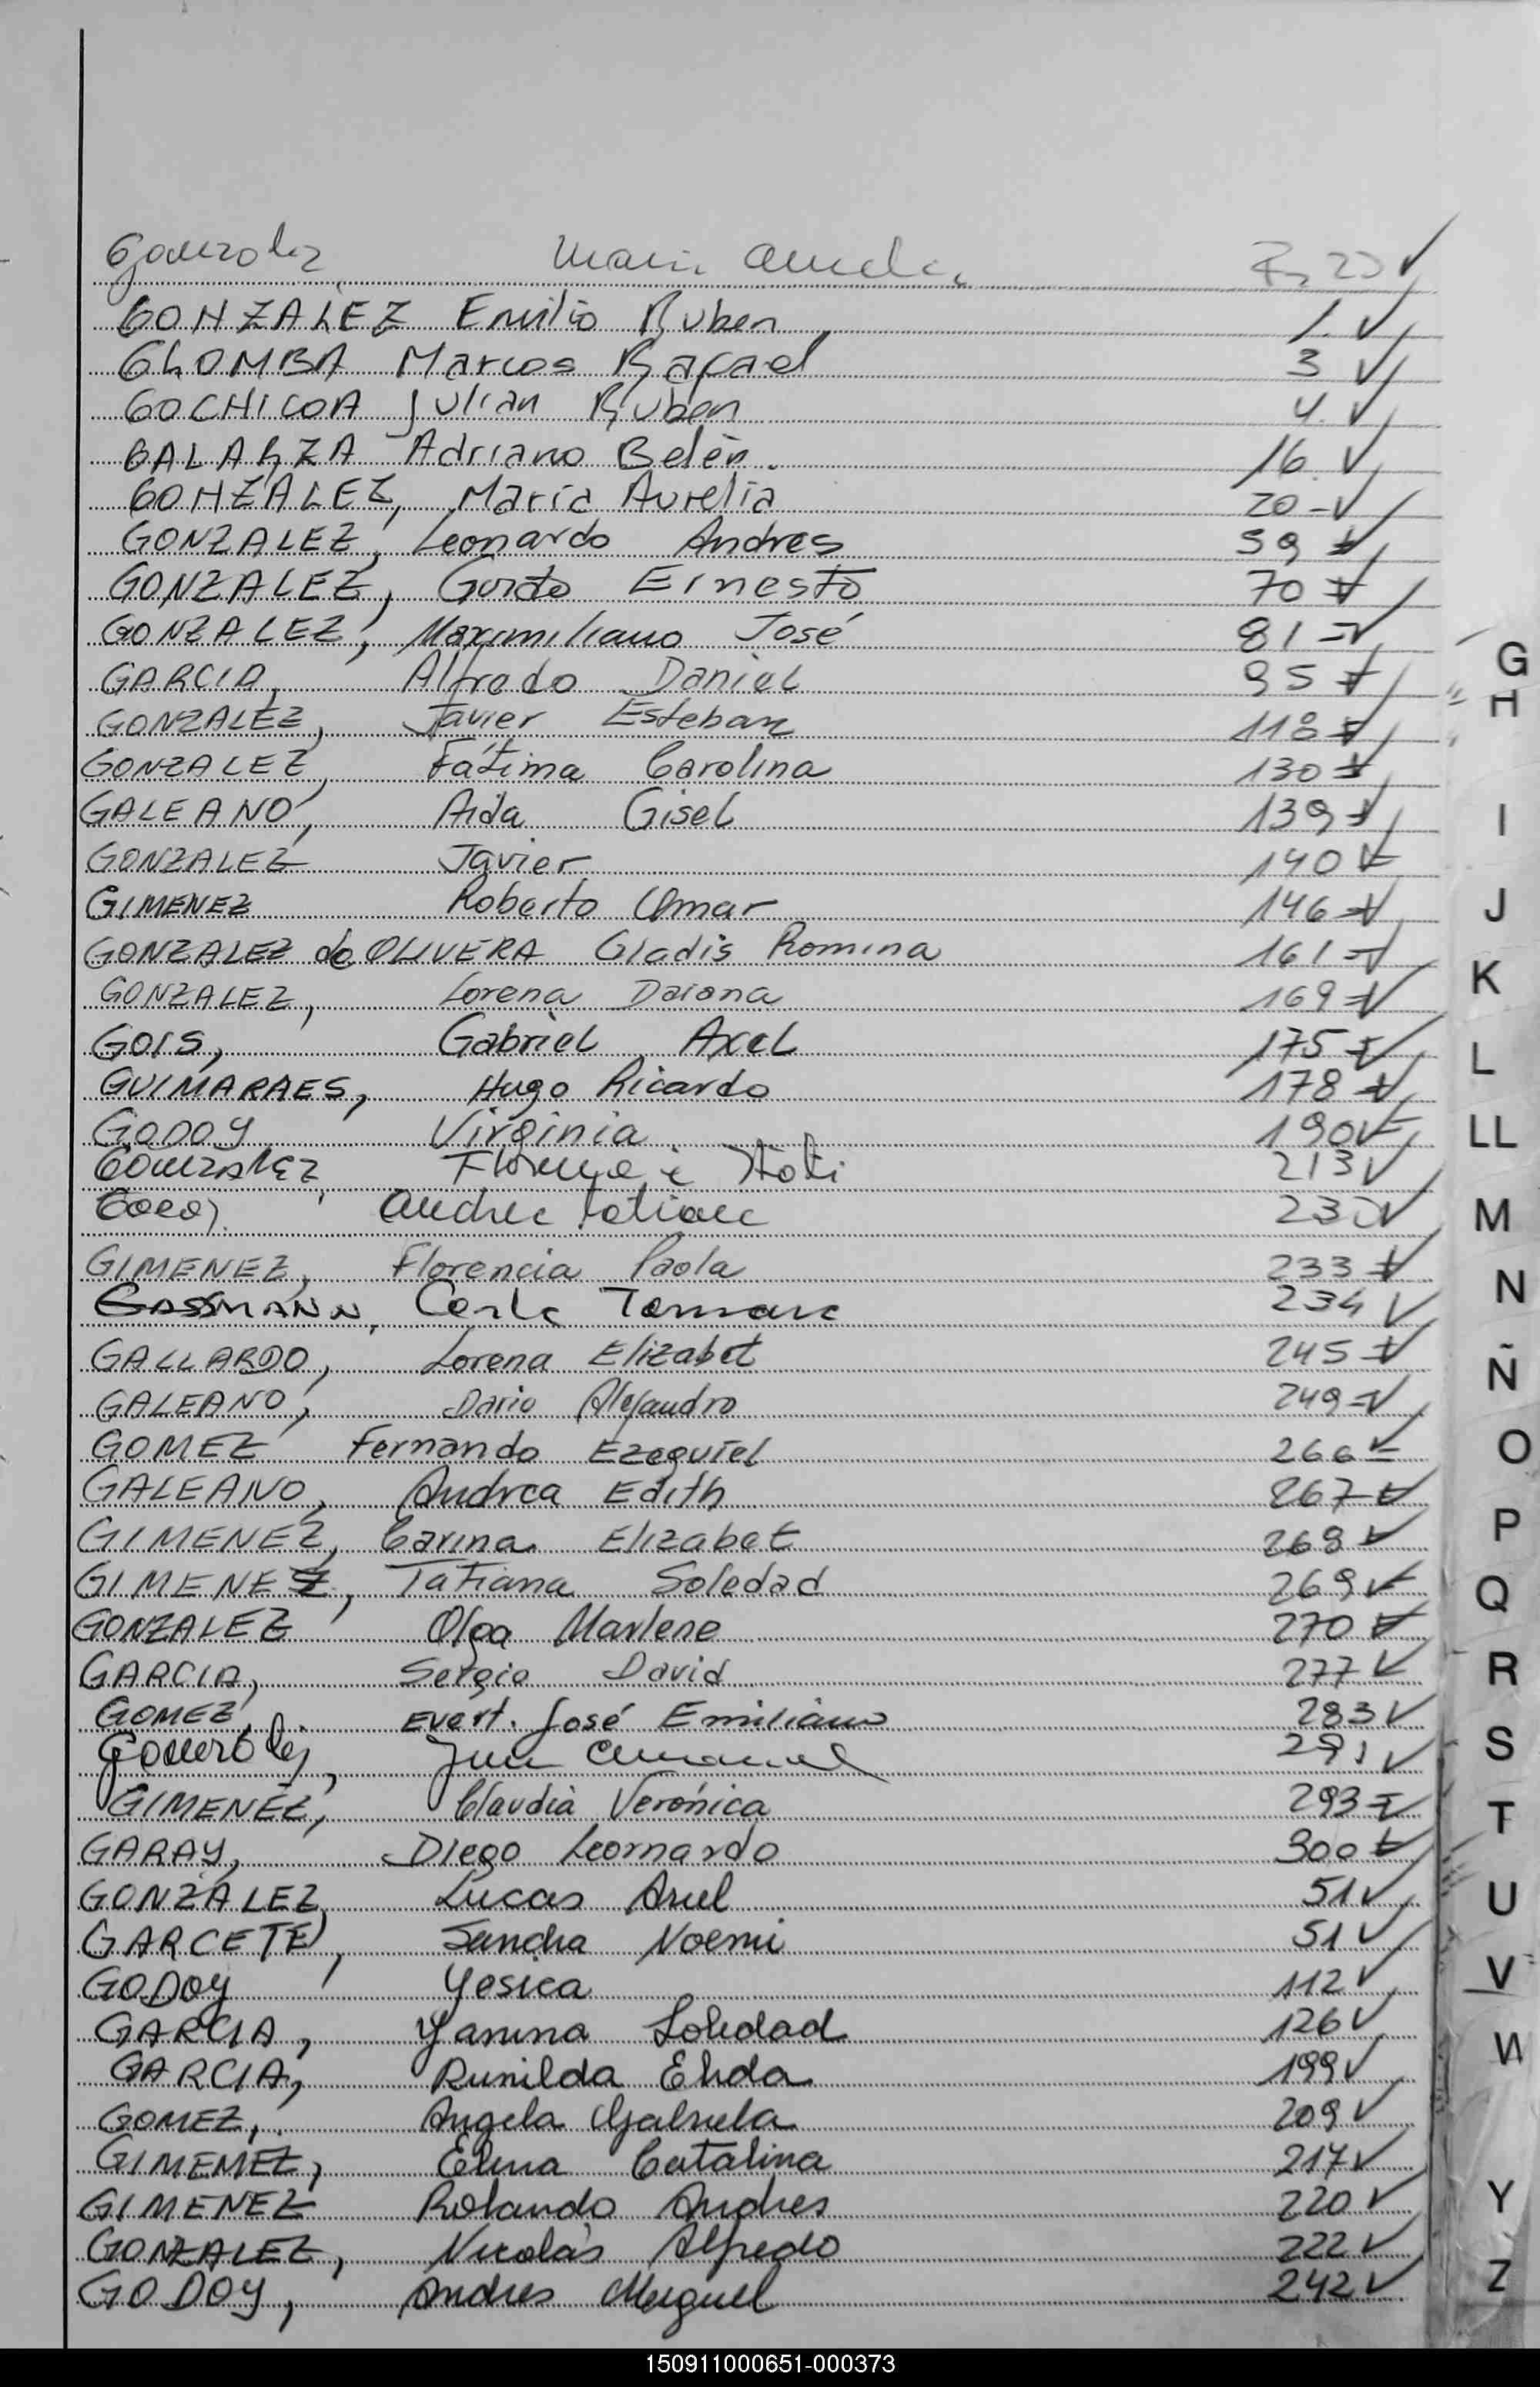 Gonzalez Maria Aurelia
GONZALEZ Emilio Ruben, 1. ✓
GLOMBA Marcos Rafael 3 ✓
GOCHICOA Julian Ruben 4. ✓
GALARZA Adriano Belén. 16 ✓
GONZALEZ, María Aurelia 20 - ✓
GONZALEZ, Leonardo Andres 59 ✓
GONZALEZ, Guido Ernesto 70 ✓
GONZALEZ, Maximiliano José 81 ✓
GARCIA, Alfredo Daniel 95 ✓
GONZALEZ, Javier Esteban 118 ✓
GONZALEZ, Fátima Carolina 130 ✓
GALEANO, Aida Gisel 139 ✓
GONZALEZ Javier 140 ✓
GIMENEZ Roberto Omar 146 ✓
GONZALEZ de OLIVERA Gladis Romina 161 ✓
GONZALEZ, Lorena Daiana 169 ✓
GOIS, Gabriel Axel 175 ✓
GUIMARAES, Hugo Ricardo 178 ✓
GODOY Virginia 190 ✓
GONZALEZ, 213 ✓
Andrea Tatiana ✓
GIMENEZ, Florencia Paola 233 ✓
GASSMANN, Carla Tamara 234 ✓
GALLARDO, Lorena Elizabet 245 ✓
GALEANO, Dario Alejandro 249 ✓
GOMEZ Fernando Ezequiel 266 ✓
GALEANO, Andrea Edith 267 ✓
GIMENEZ, Carina Elizabet 268 ✓
GIMENEZ, Tatiana Soledad 269 ✓
GONZALEZ Olga Marlene 270 ✓
GARCIA, Sergio David 277 ✓
GOMEZ, Evert. José Emiliano 283 ✓
Gonzalez, Juan Emanuel 291 ✓
GIMENEZ, Claudia Verónica 293 ✓
GARAY, Diego Leornardo 300 ✓
GONZALEZ Lucas Ariel 51 ✓
GARCETE, Sandra Noemi 51 ✓
GODOY Yesica 112 ✓
GARCIA, Yanina Soledad 126 ✓
GARCIA, Runilda Elida 199 ✓
GOMEZ, Angela Gabriela 209 ✓
GIMEMEZ, Elina Catalina 217 ✓
GIMENEZ Rolando Andres 220 ✓
GONZALEZ, Nicolás Alfredo 222 ✓
GODOY, Andres Miguel 242 ✓
G
H
I
J
K
L
LL
M
N
Ñ
O
P
Q
R
S
T
U
V
W
Y
Z
150911000651-000373